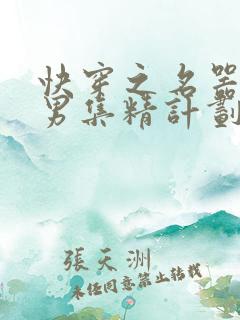 快穿之名器
男集精計劃
張天洲
未经同意禁止转载